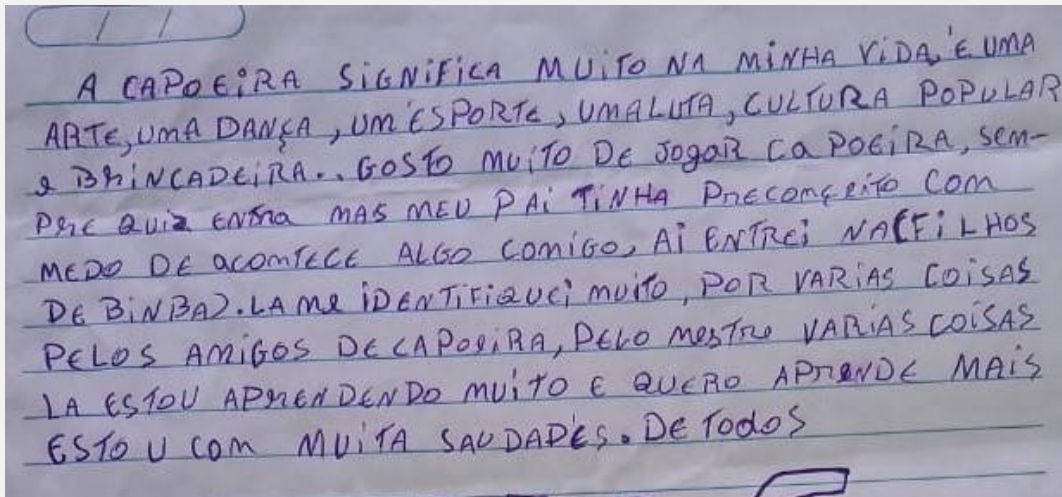 A CAPOEIRA SIGNIFICA MUITO NA MINHA VIDA, É UMA
ARTE, UMA DANÇA, UM ESPORTE, UMA LUTA, CULTURA POPULAR
e BRINCADEIRA.. GOSTO MUITO DE JOGAR CAPOEIRA, SEM-
PRE QUIZ ENTRA MAS MEU PAI TINHA PRECONCEITO COM
MEDO DE ACONTECE ALGO COMIGO, AÍ ENTREI NA (FILHOS
DE BINBA). LA ME IDENTIFIQUEI MUITO, POR VARIAS COISAS
PELOS AMIGOS DE CAPOEIRA, PELO MESTRE VARIAS COISAS
LA ESTOU APRENDENDO MUITO E QUERO APRENDE MAIS
ESTOU COM MUITA SAUDADES. DE TODOS